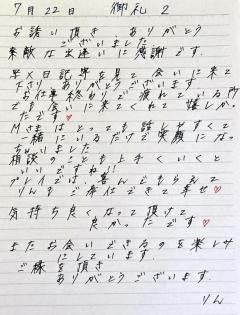 7月22日 御礼 2
お誘い頂き ありがとう
ございました
素敵な出逢いに感謝です.
早×日記等を見て会いに来て
下さり ありがとうございます
お仕事終わりで疲れている所
でも会いに来てくれて嬉しか
ったです♡
Mさまはとっても話しやすくて
一緒にいる方だけで笑顔になっ
ちゃいました
相談のことも上手くいくと
いいですね!!
プレイでは喜んでもらえて
りんもご奉仕できて幸せ♡
気持ち良くなって頂けて
良かったです♡
またお会いできるのを楽しみ
にしています.
ご縁を頂き
ありがとうございます.
りん